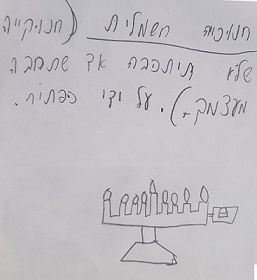 חנוכייה חשמלית (חנוקייה
שלא תיתכבה אד שתחבה
מעצמך-). על ידי כפתור.